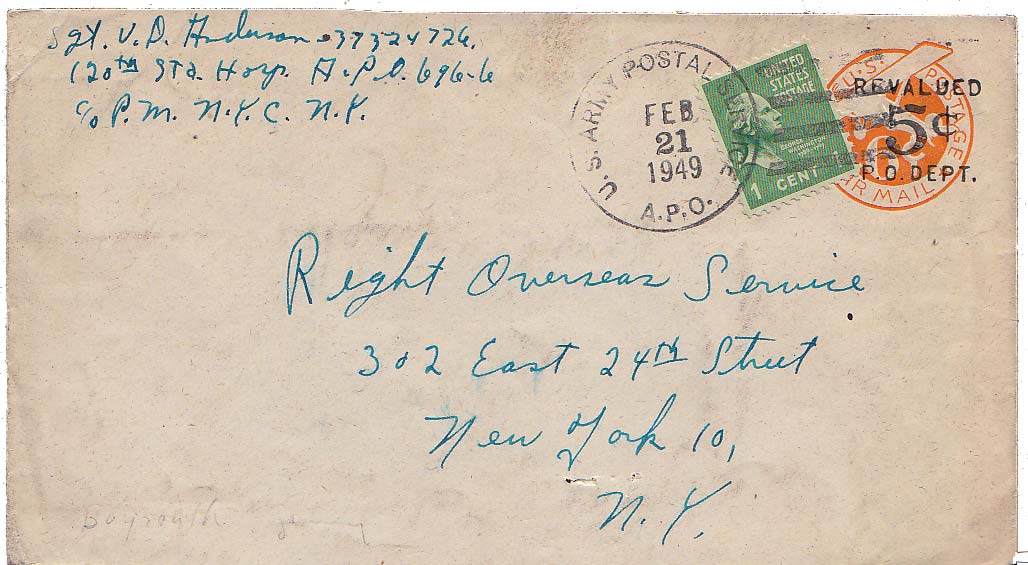 Sgt. V. D. Anderson 37324726.
120th Sta. Hosp. A.P.O. 696-6
c/o P.M. N.Y.C. N.Y.
U.S. ARMY POSTAL SERVICE
FEB
21
1949
A.P.O.
UNITED
STATES
POSTAGE
GEORGE WASHINGTON
1 CENT
U.S. POSTAGE
REVALUED
5¢
P.O. DEPT.
6¢
AIR MAIL
Right Overseas Service
302 East 24th Street
New York 10,
N.Y.